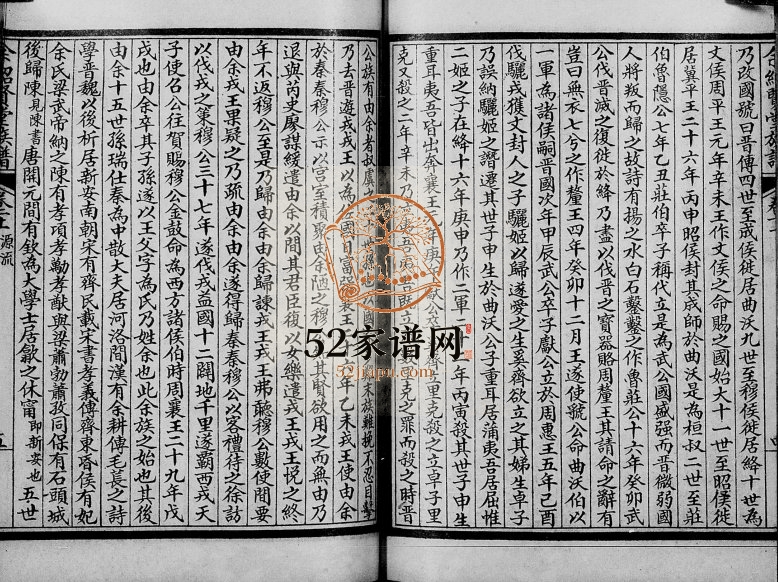 乃改國號曰晉傳四世至成侯徙居曲沃九世至穆侯徙居絳十世為
文侯周平王元年辛未王作文侯之命賜之國始大十一世至昭侯徙
居翼平王二十六年丙申昭侯封其成師於曲沃是為桓叔二世至莊
伯魯隱公七年乙丑莊伯卒子稱代立是為武公國盛强而晉微弱國
人將叛而歸之故詩有揚之水白石鑿鑿之作魯莊公十六年癸卯武
公伐晉滅之復徙於絳乃盡以伐晉之寶器賂周釐王其請命之辭有
豈曰無衣七兮之作釐王四年癸卯十二月王遂使虢公命曲沃伯以
一軍為諸侯嗣晉國次年甲辰武公卒子獻公立於周惠王五年己酉
伐驪戎獲丈封人之子驪姬以歸遂愛之生奚齊欲立之其娣生卓子
乃誤納驪姬之譖遷其世子申生於曲沃公子重耳居蒲夷吾居屈惟
二姬之子在絳十六年庚申乃作二軍 年丙寅殺其世子申生
重耳夷吾皆出奔襄王元年庚 公卒 立里克殺之立卓子里
克又殺之二年辛未乃 夷吾 立 克之罪而殺之時晉
公族有由余者叔虞 世孫 公族難挽不忍目擊
乃去晉遊戎戎王以為 國日富 年乙未戎王使由余
於秦秦穆公示以宮室積聚由余陋之穆 其賢欲用之而無由乃
退與芮史廖謀緩遣由余以間其君臣復以女樂遺戎王戎王悅之終
年不返穆公至是乃歸由余由余歸諫戎王戎王弗聽穆公數使間要
由余戎王果疑之乃疏由余由余遂得歸秦秦穆公以客禮待之徐訪
以伐戎之策穆公三十七年遂伐戎益國十二闢地千里遂霸西戎天
子使召公往賀賜穆公金鼓命為西方諸侯伯時周襄王二十九年戊
戌也由余卒其子孫遂以王父字為氏乃姓余也此余族之始也其後
由余十五世孫瑞仕秦為中散大夫居河洛間漢有余耕傳毛萇之詩
學晉魏以後析居新安南朝宋有齊民載宋書孝義傳齊東昏侯有妃
余氏梁武帝納之陳有孝項孝勱孝猷與梁蕭勃蕭孜同保有石頭城
後歸陳見陳書唐開元間有欽為大學士居歙之休甯即新安也五世
余紹賢堂族譜
卷二
源流
五
52家谱网
52jiapu.com